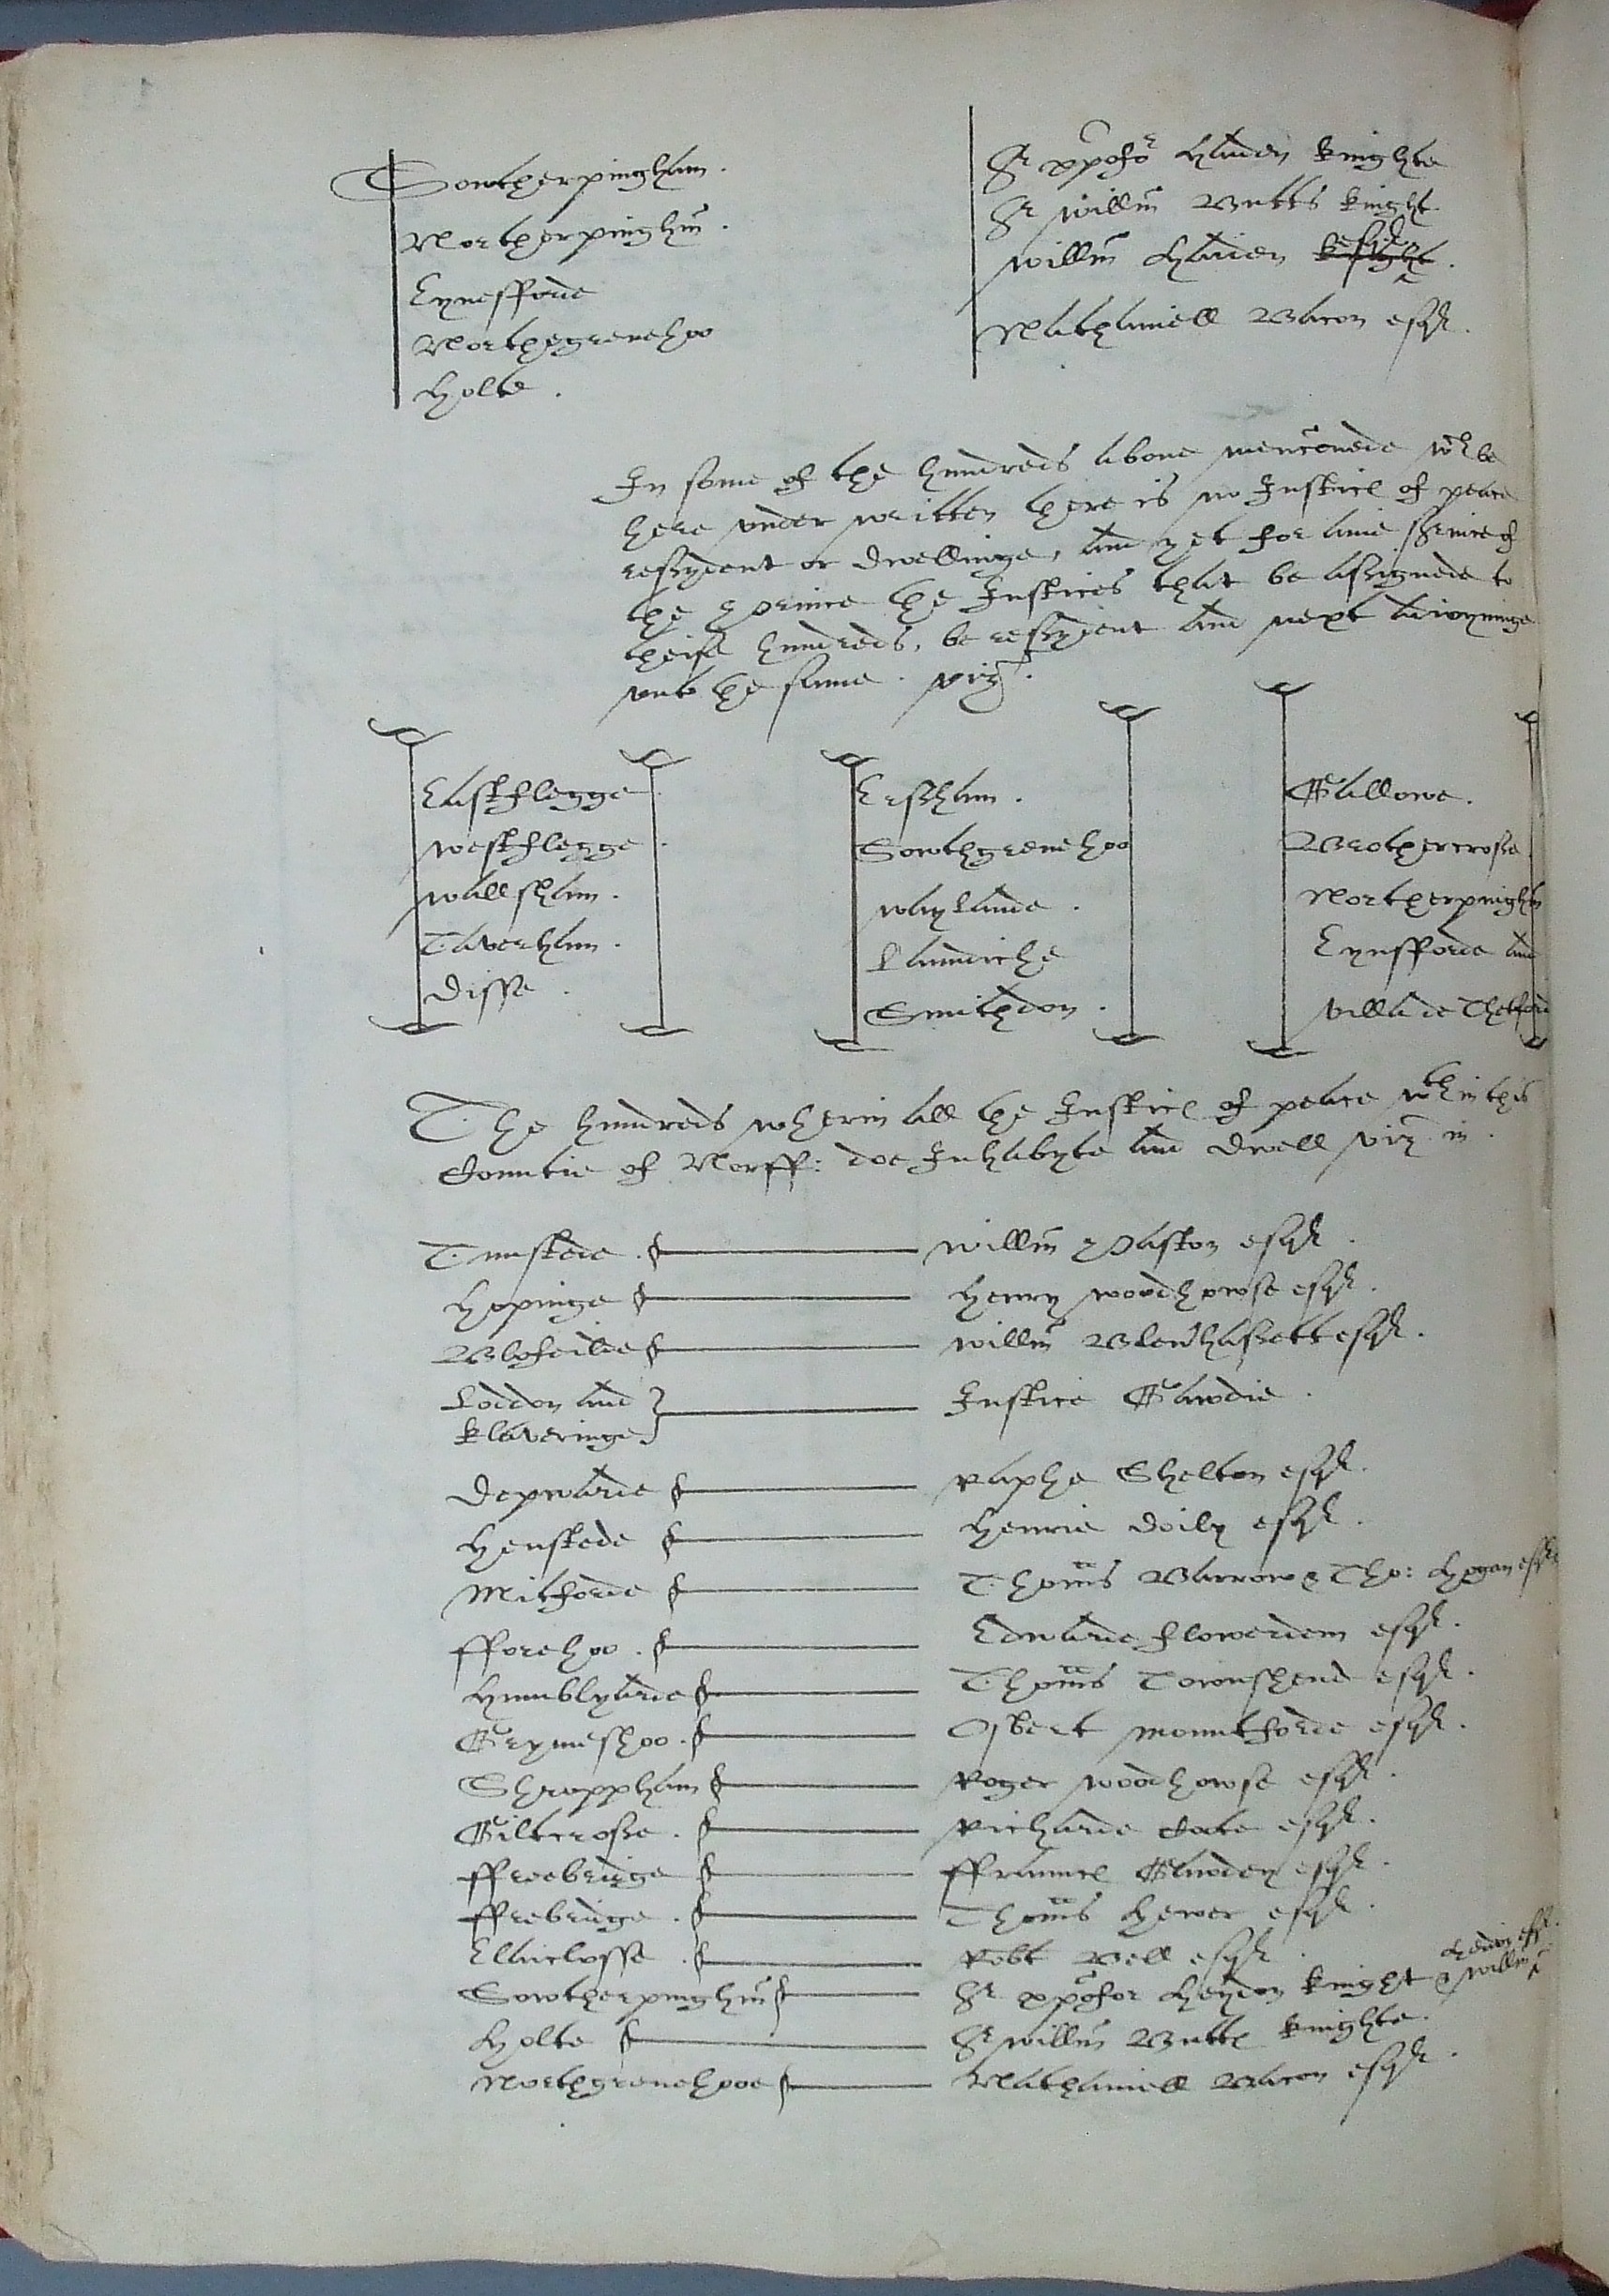 Sowtherpingham .
Northerpinghm̃ .
Eynesfforde
Northegrenehoo
Holte .
Sr xpõfor Haiden knighte
Sr Willm̃ Butts knight
Willm̃ Haiden knight esqr .
Nathaniell Bacon esqr .
In some of the hundreds above menc̃onede wch be
here vnder written there is no Justice of peace
ressydent or dwellinge, and yet for anie service of
the prince the Justices that be assignede to
theise hundreds, be ressydent and next adioyninge
vnto the same . viz .
Eastflegge .
Westflegge .
Wallsham .
Taverham .
Disse .
Ersham .
Sowthgrenehoo
Waylande .
Laundiche
Smithdon .
Gallowe .
Brothercrosse
Northerpinghm̃
Eynsfforde and
villa de Thetford
The hundreds wherin all the Justices of peace wthin this
Countie of Norff: doe Inhabyte and dwell viz in .
Tunstede . Willm̃ Paston esqr .
Hapinge Henry Woodhowse esqr .
Blofeilde Willm̃ Blenhassett esqr .
Loddon and
Klaveringe Justice Gawdie .
Depwade Raphe Shelton esqr .
Henstede Henrie Doily esqr .
Mitforde Thom̃s Barrow & Tho: Hogan esqrs
fforehoo . Edwarde flowerdew esqr .
Humblyarde Thom̃s Townshend esqr .
Grymeshoo . Osbert Mountforde esqr .
Shroppham Roger Woodhowse esqr .
Giltcrosse . Richarde Cate esqr .
ffreebridge ffraunces Gawdey esqr .
ffrebridge . Thom̃s Hewer esqr .
Claiclosse . Robt Bell esqr .
Sowtherpinghm̃ Sr xpõfor Heydon knight & Willm̃ Hedon esqr .
Holte Sr Willm̃ Butts knighte .
Northgrenehooe Nathaniell Bacon esqr .